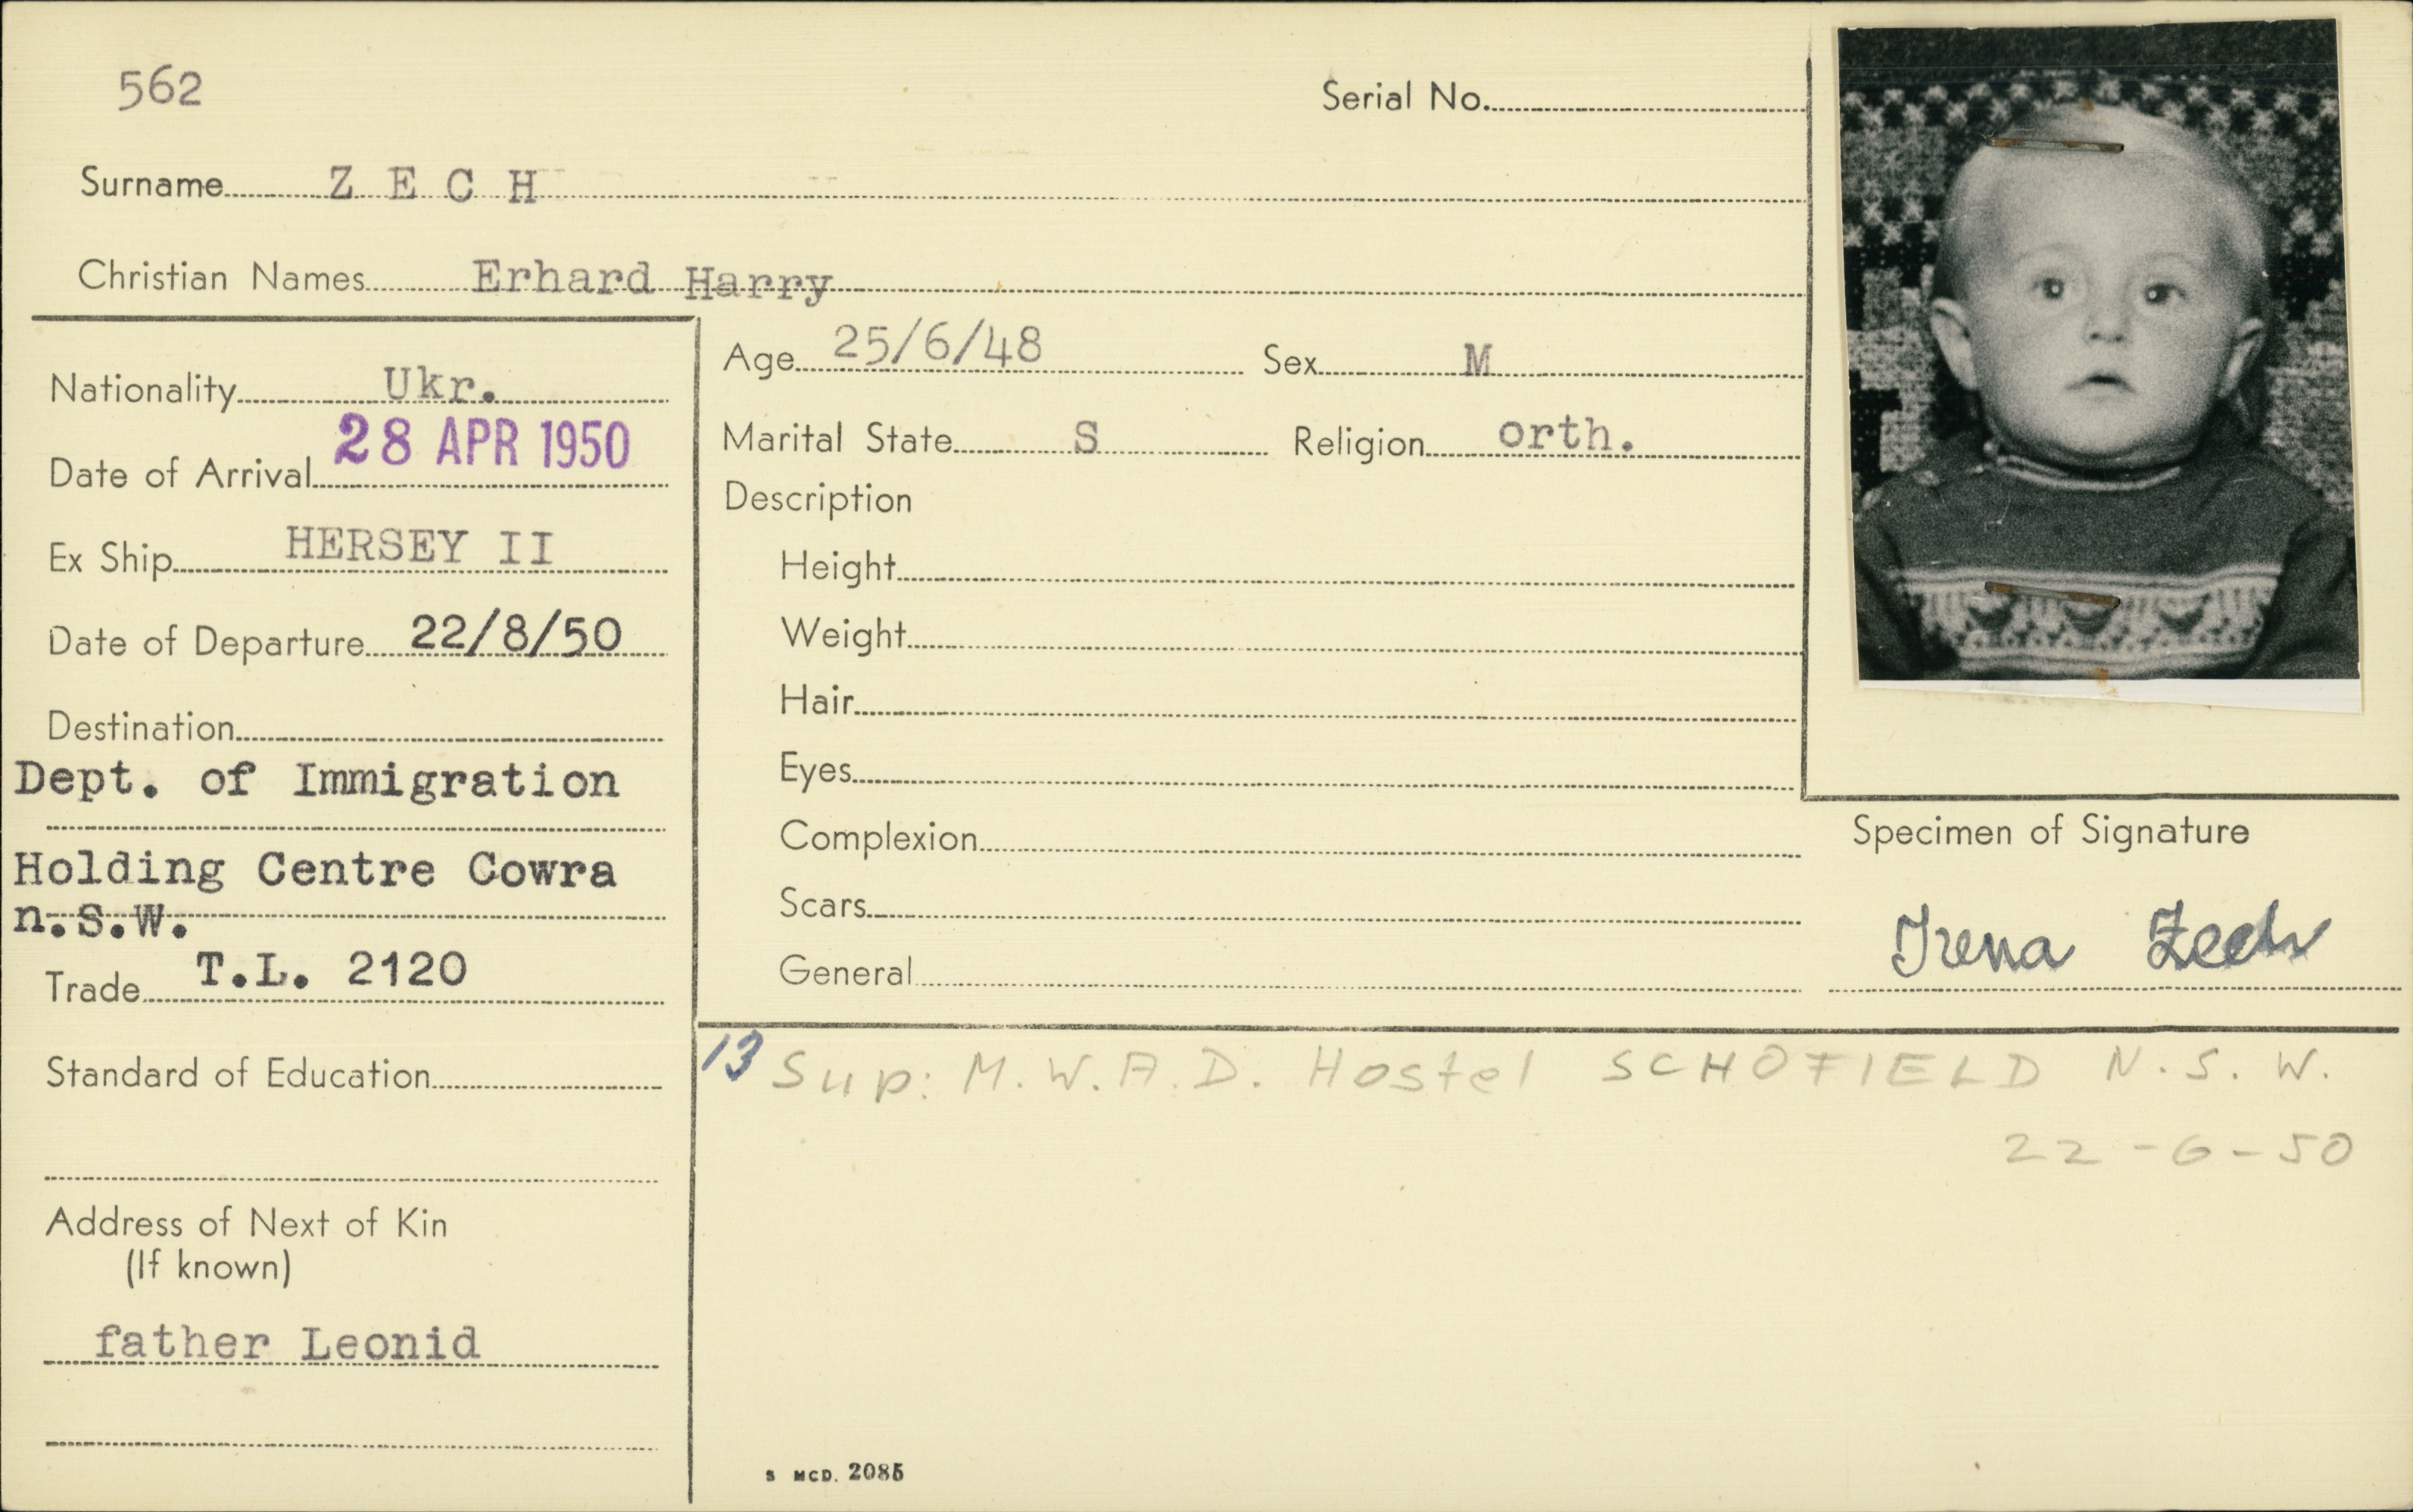 562
Serial No.
Surname Z E C H
Christian Names Erhard Harry
Nationality Ukr.
Date of Arrival 28 APR 1950
Ex Ship HERSEY II
Date of Departure 22/8/50
Destination
Dept. of Immigration
Holding Centre Cowra
n.S.W.
Trade T.L. 2120
Standard of Education
Address of Next of Kin
(If known)
father Leonid
Age 25/6/48 Sex M
Marital State S Religion orth.
Description
Height
Weight
Hair
Eyes
Complexion
Scars
General
Specimen of Signature
Irena Zech
13 Sup: M.W.A.D. Hostel SCHOFIELD N.S.W.
22-6-50
S MCD. 2085